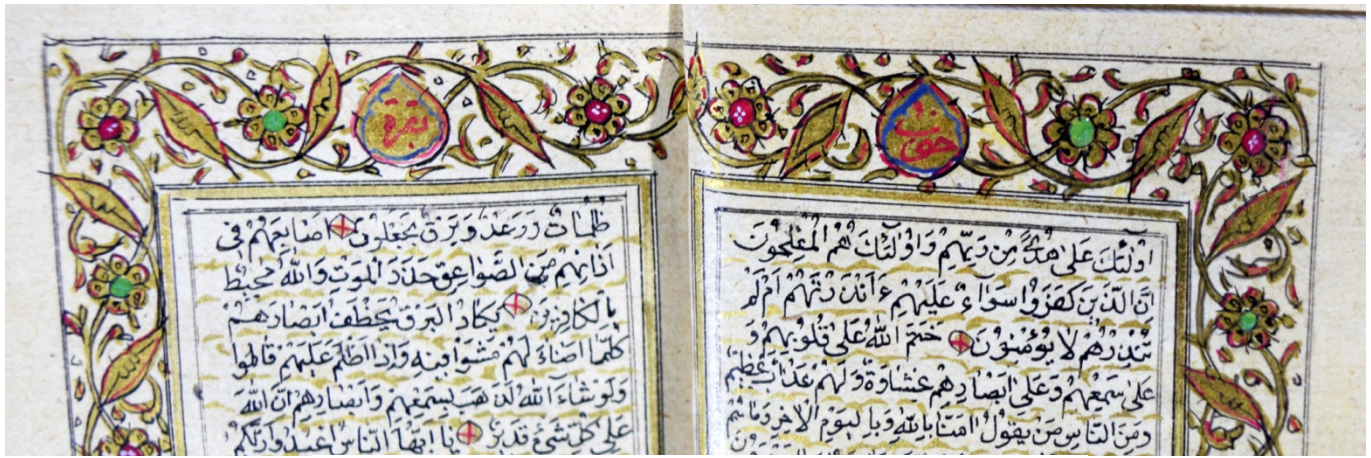 اُولٰئِكَ عَلٰى هُدًى مِنْ رَبِّهِمْ وَاُولٰئِكَ هُمُ الْمُفْلِحُونَ
اِنَّ الَّذِينَ كَفَرُوا سَوَاءٌ عَلَيْهِمْ ءَاَنْذَرْتَهُمْ اَمْ لَمْ
تُنْذِرْهُمْ لَا يُؤْمِنُونَ خَتَمَ اللّٰهُ عَلٰى قُلُوبِهِمْ وَ
عَلٰى سَمْعِهِمْ وَعَلٰى اَبْصَارِهِمْ غِشَاوَةٌ وَلَهُمْ عَذَابٌ عَظِيمٌ
وَمِنَ النَّاسِ مَنْ يَقُولُ اٰمَنَّا بِاللّٰهِ وَبِالْيَوْمِ الْاٰخِرِ وَمَاهُمْ
بقرة
ظُلُمَاتٌ وَرَعْدٌ وَبَرْقٌ يَجْعَلُونَ اَصَابِعَهُمْ فِى
اٰذَانِهِمْ مِنَ الصَّوَاعِقِ حَذَرَ الْمَوْتِ وَاللّٰهُ مُحِيطٌ
بِالْكَافِرِينَ يَكَادُ الْبَرْقُ يَخْطَفُ اَبْصَارَهُمْ
كُلَّمَا اَضَاءَ لَهُمْ مَشَوْا فِيهِ وَاِذَا اَظْلَمَ عَلَيْهِمْ قَامُوا
وَلَوْ شَاءَ اللّٰهُ لَذَهَبَ بِسَمْعِهِمْ وَاَبْصَارِهِمْ اِنَّ اللّٰهَ
عَلٰى كُلِّ شَىْءٍ قَدِيرٌ يَا اَيُّهَا النَّاسُ اعْبُدُوا رَبَّكُمُ